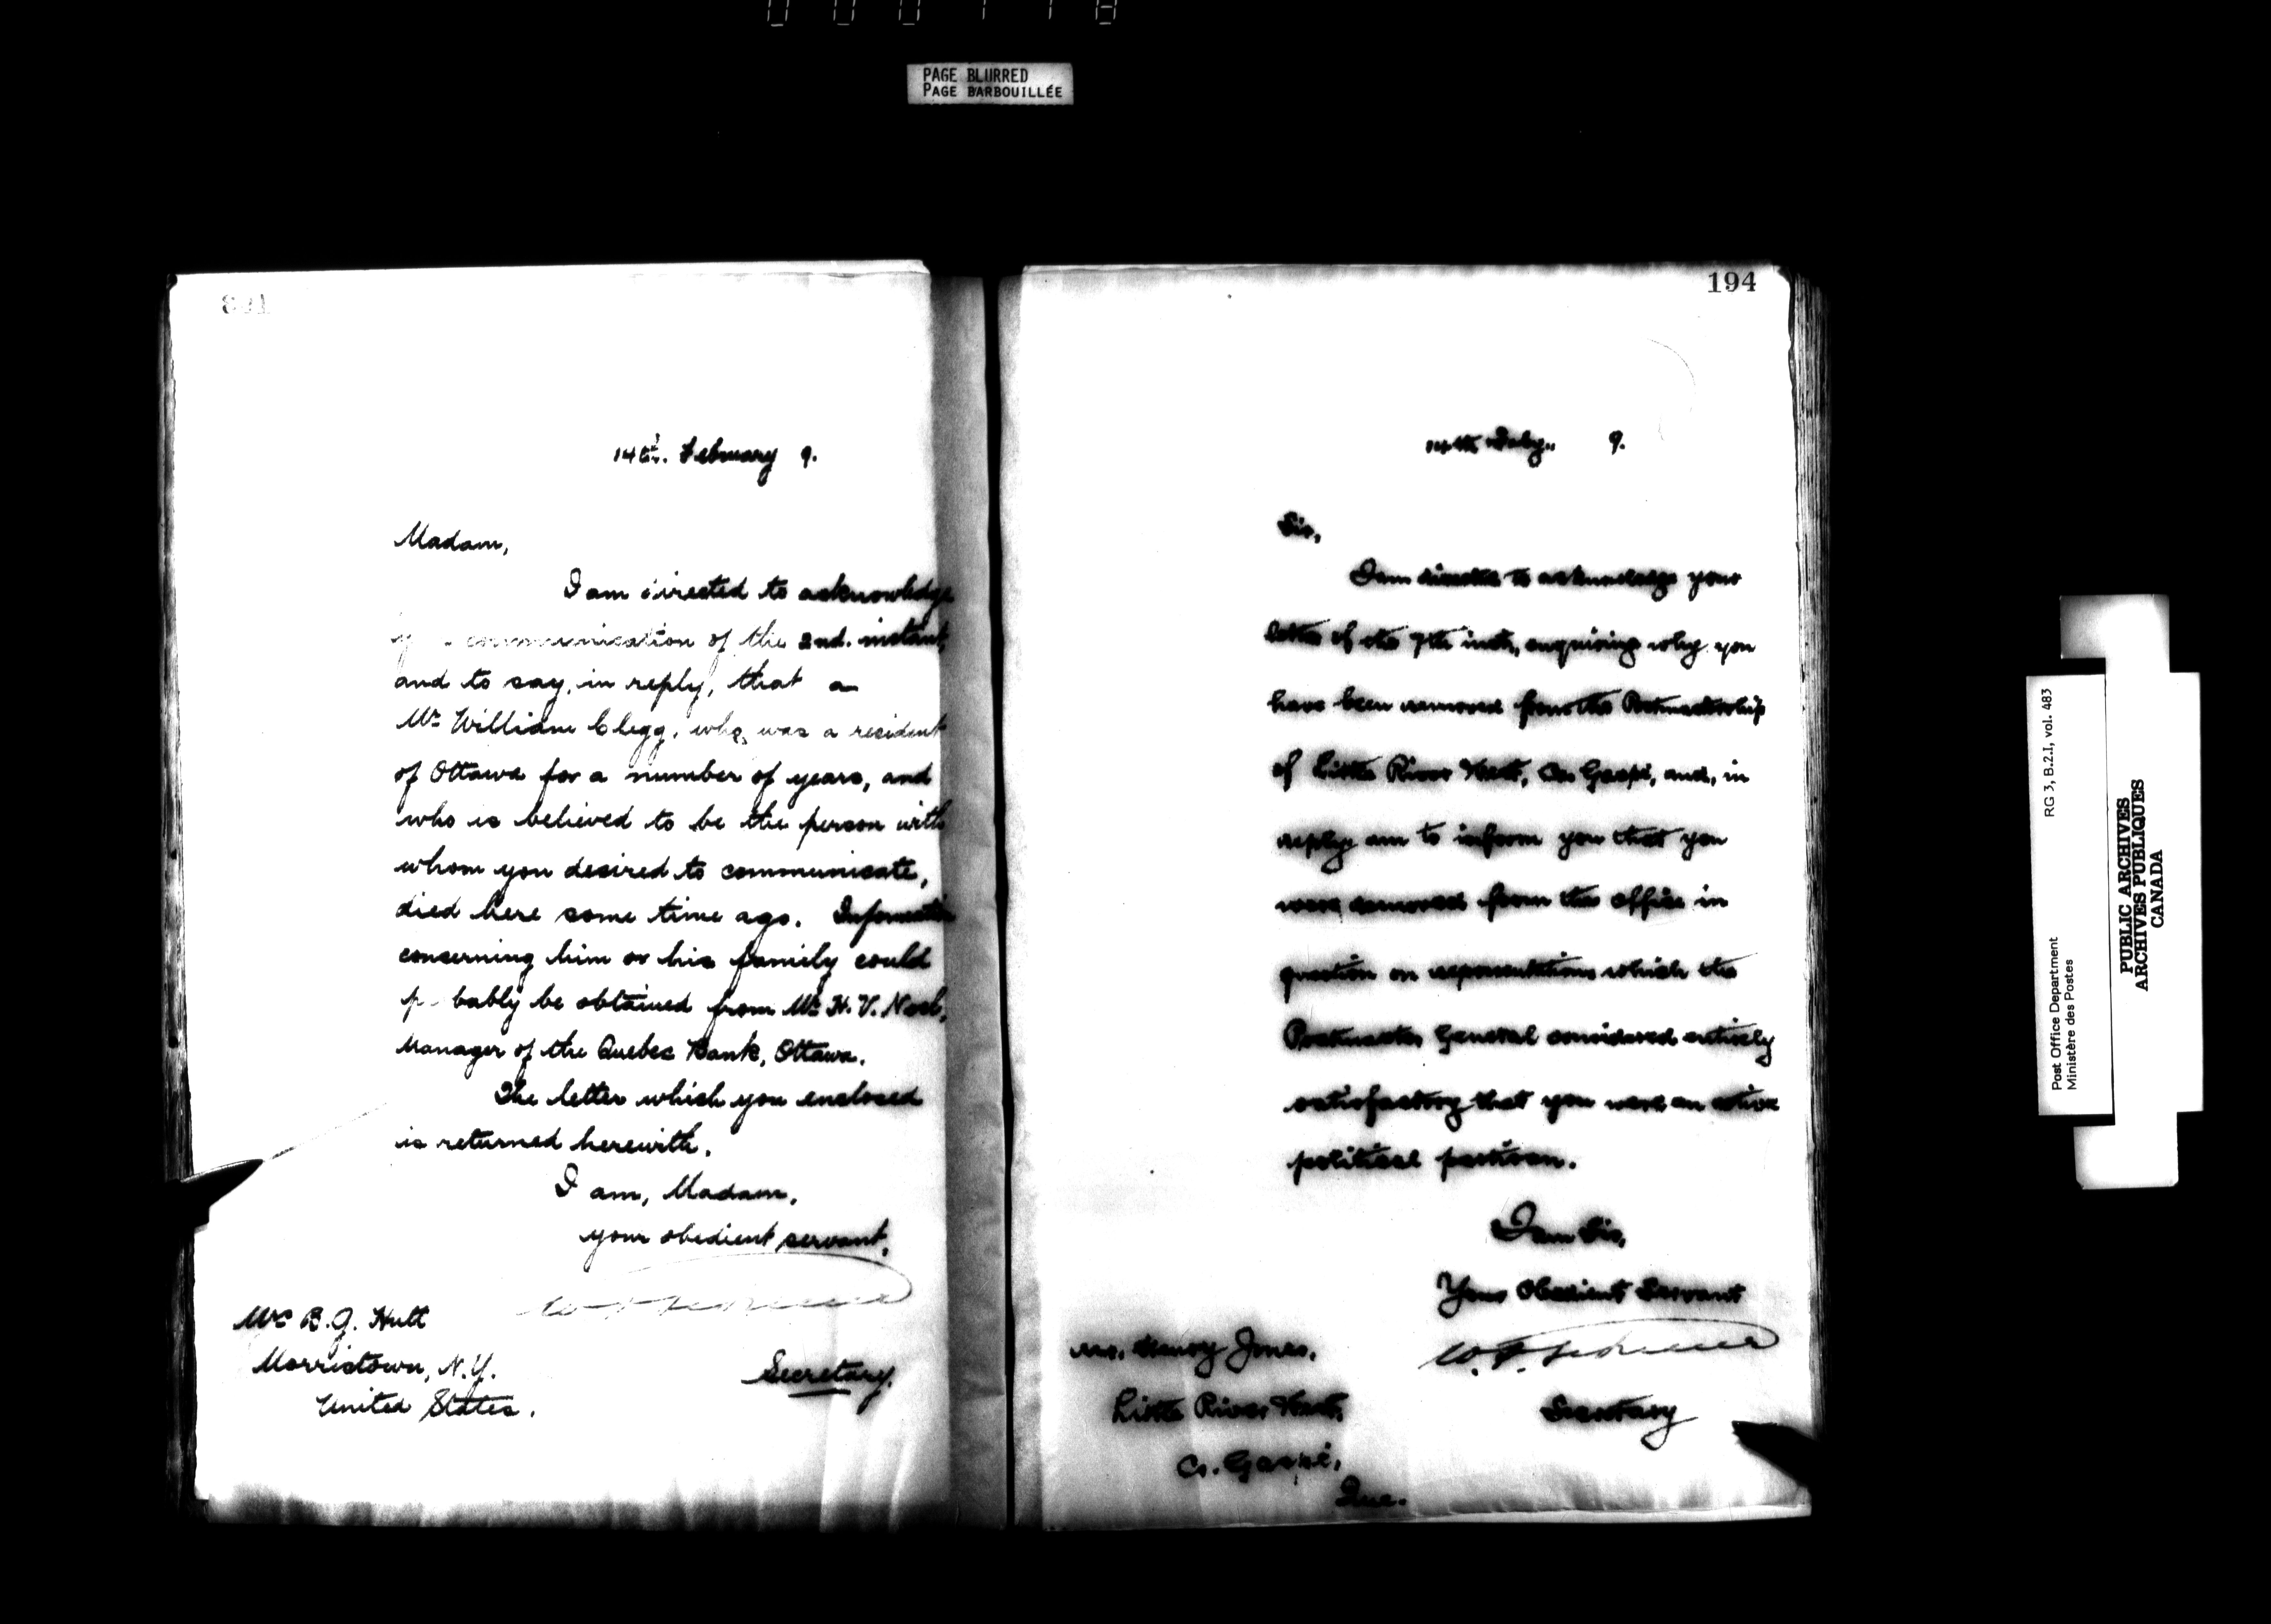 000118
PAGE BLURRED
PAGE BARBOUILLÉE
14th. February 9.
Madam,
I am directed to acknowledge
communication of the 2nd. instant,
and to say, in reply, that a
Mr William Clegg, who was a resident
of Ottawa for a number of years, and
who is believed to be the person with
whom you desired to communicate,
died here some time ago. Information
concerning him or his family could
p bably be obtained from Mr H. V. Noel,
Manager of the Quebec Bank, Ottawa.
The letter which you enclosed
is returned herewith.
I am, Madam,
your obedient servant,
Secretary.
B. J. Hutt
Morristown, N.Y.
United States.
194
14th Feby. 9.
Sir,
I am directed to acknowledge your
letter of the 7th inst, enquiring why you
have been removed from the Postmastership
of Little River West, Co. Gaspé, and, in
reply am to inform you that you
were removed from the office in
question on representations which the
Postmaster General considered entirely
satisfactory that you were an active
political partizan.
I am Sir,
Your Obedient Servant
Secretary
Mr. Henry Jones,
Little River West,
Co. Gaspé,
Que.
Post Office Department
Ministère des Postes
RG 3, B.2.I, vol. 483
PUBLIC ARCHIVES
ARCHIVES PUBLIQUES
CANADA